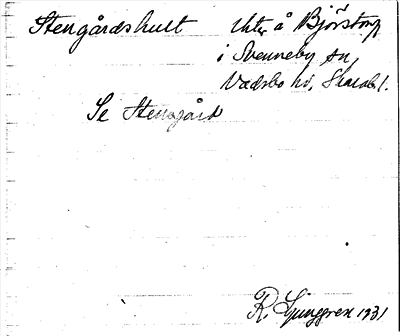 Stengårdshult thtr å Björstorp
i Svenneby sn,
Vadsbo hd, Skarab. l.
Se Stensgård
R. Ljunggren 1931